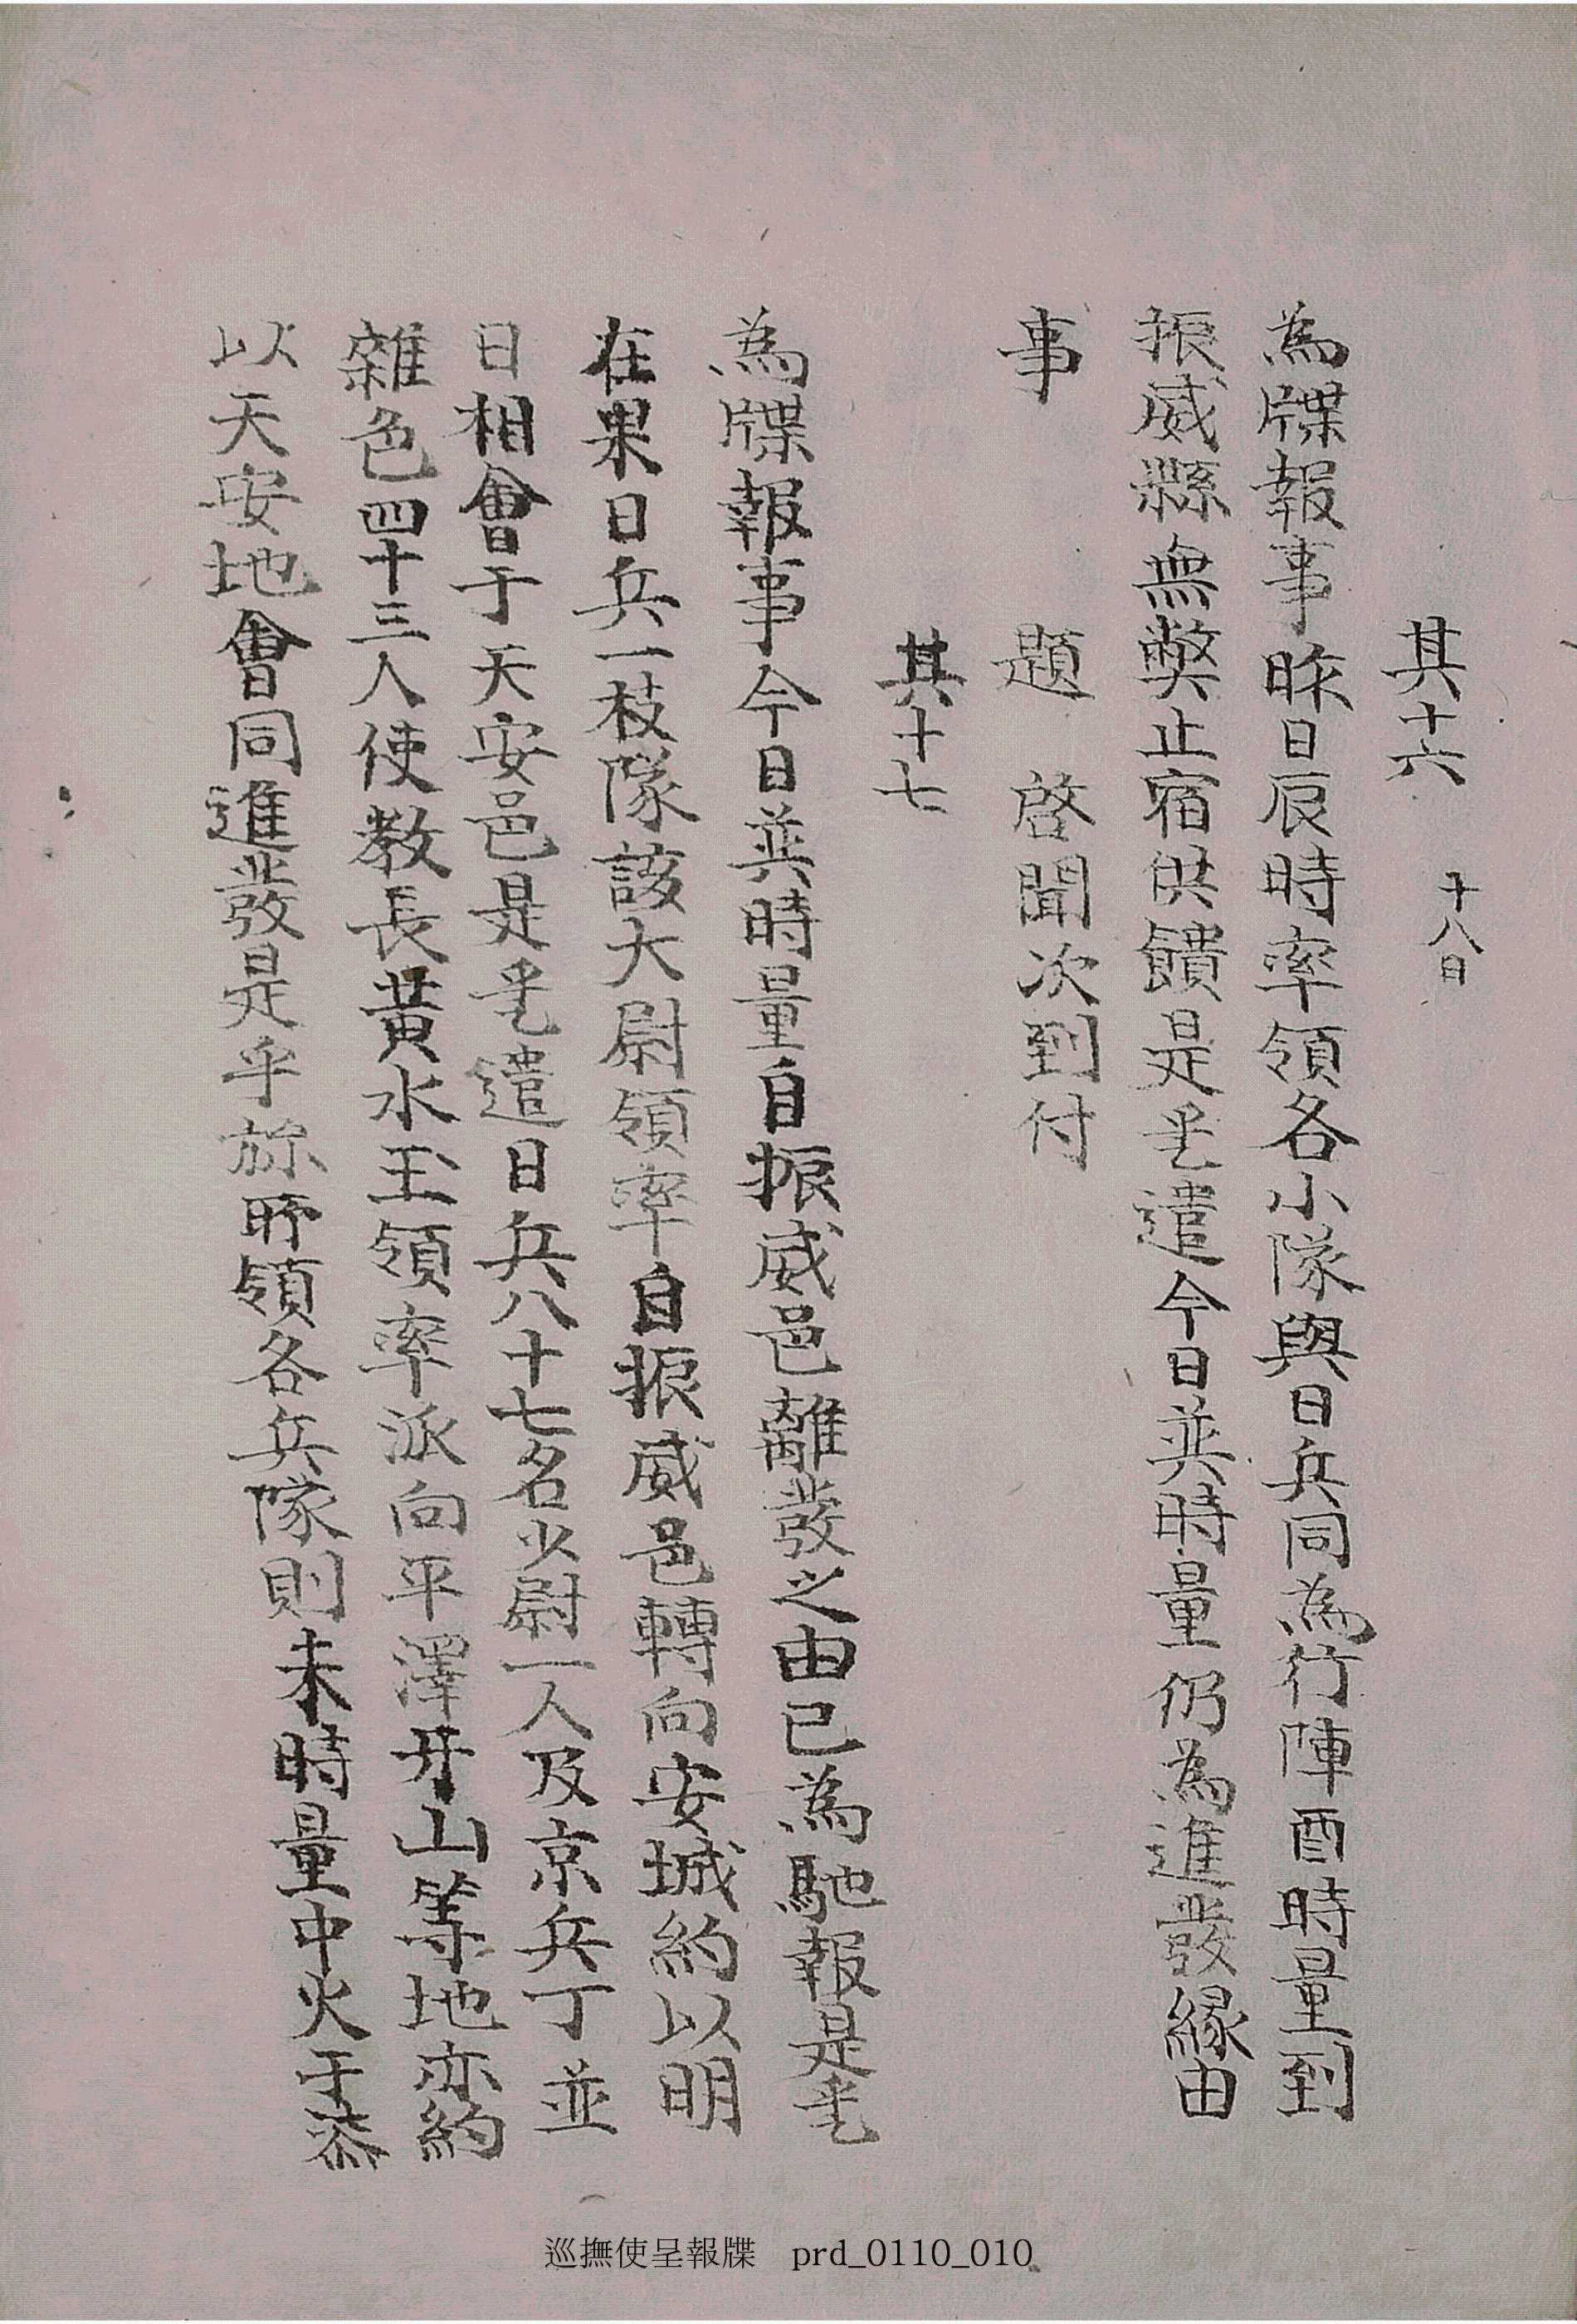 其十六 十八日
為牒報事昨日辰時率領各小隊與日兵同為行陣酉時量到
振威縣無弊止宿供饋是乎遣今日並時量仍為進發緣由
事 題 啓聞次到付
其十七
為牒報事今日並時量自振威邑離發之由已為馳報是乎
在果日兵一枝隊該大尉領率自振威邑轉向安城約以明
日相會于天安邑是乎遣日兵八十七名少尉一人及京兵丁並
雜色四十三人使教長黃水玉領率派向平澤牙山等地亦約
以天安地會同進發是乎旀所領各兵隊則未時量中火于柒
巡撫使呈報牒 prd_0110_010